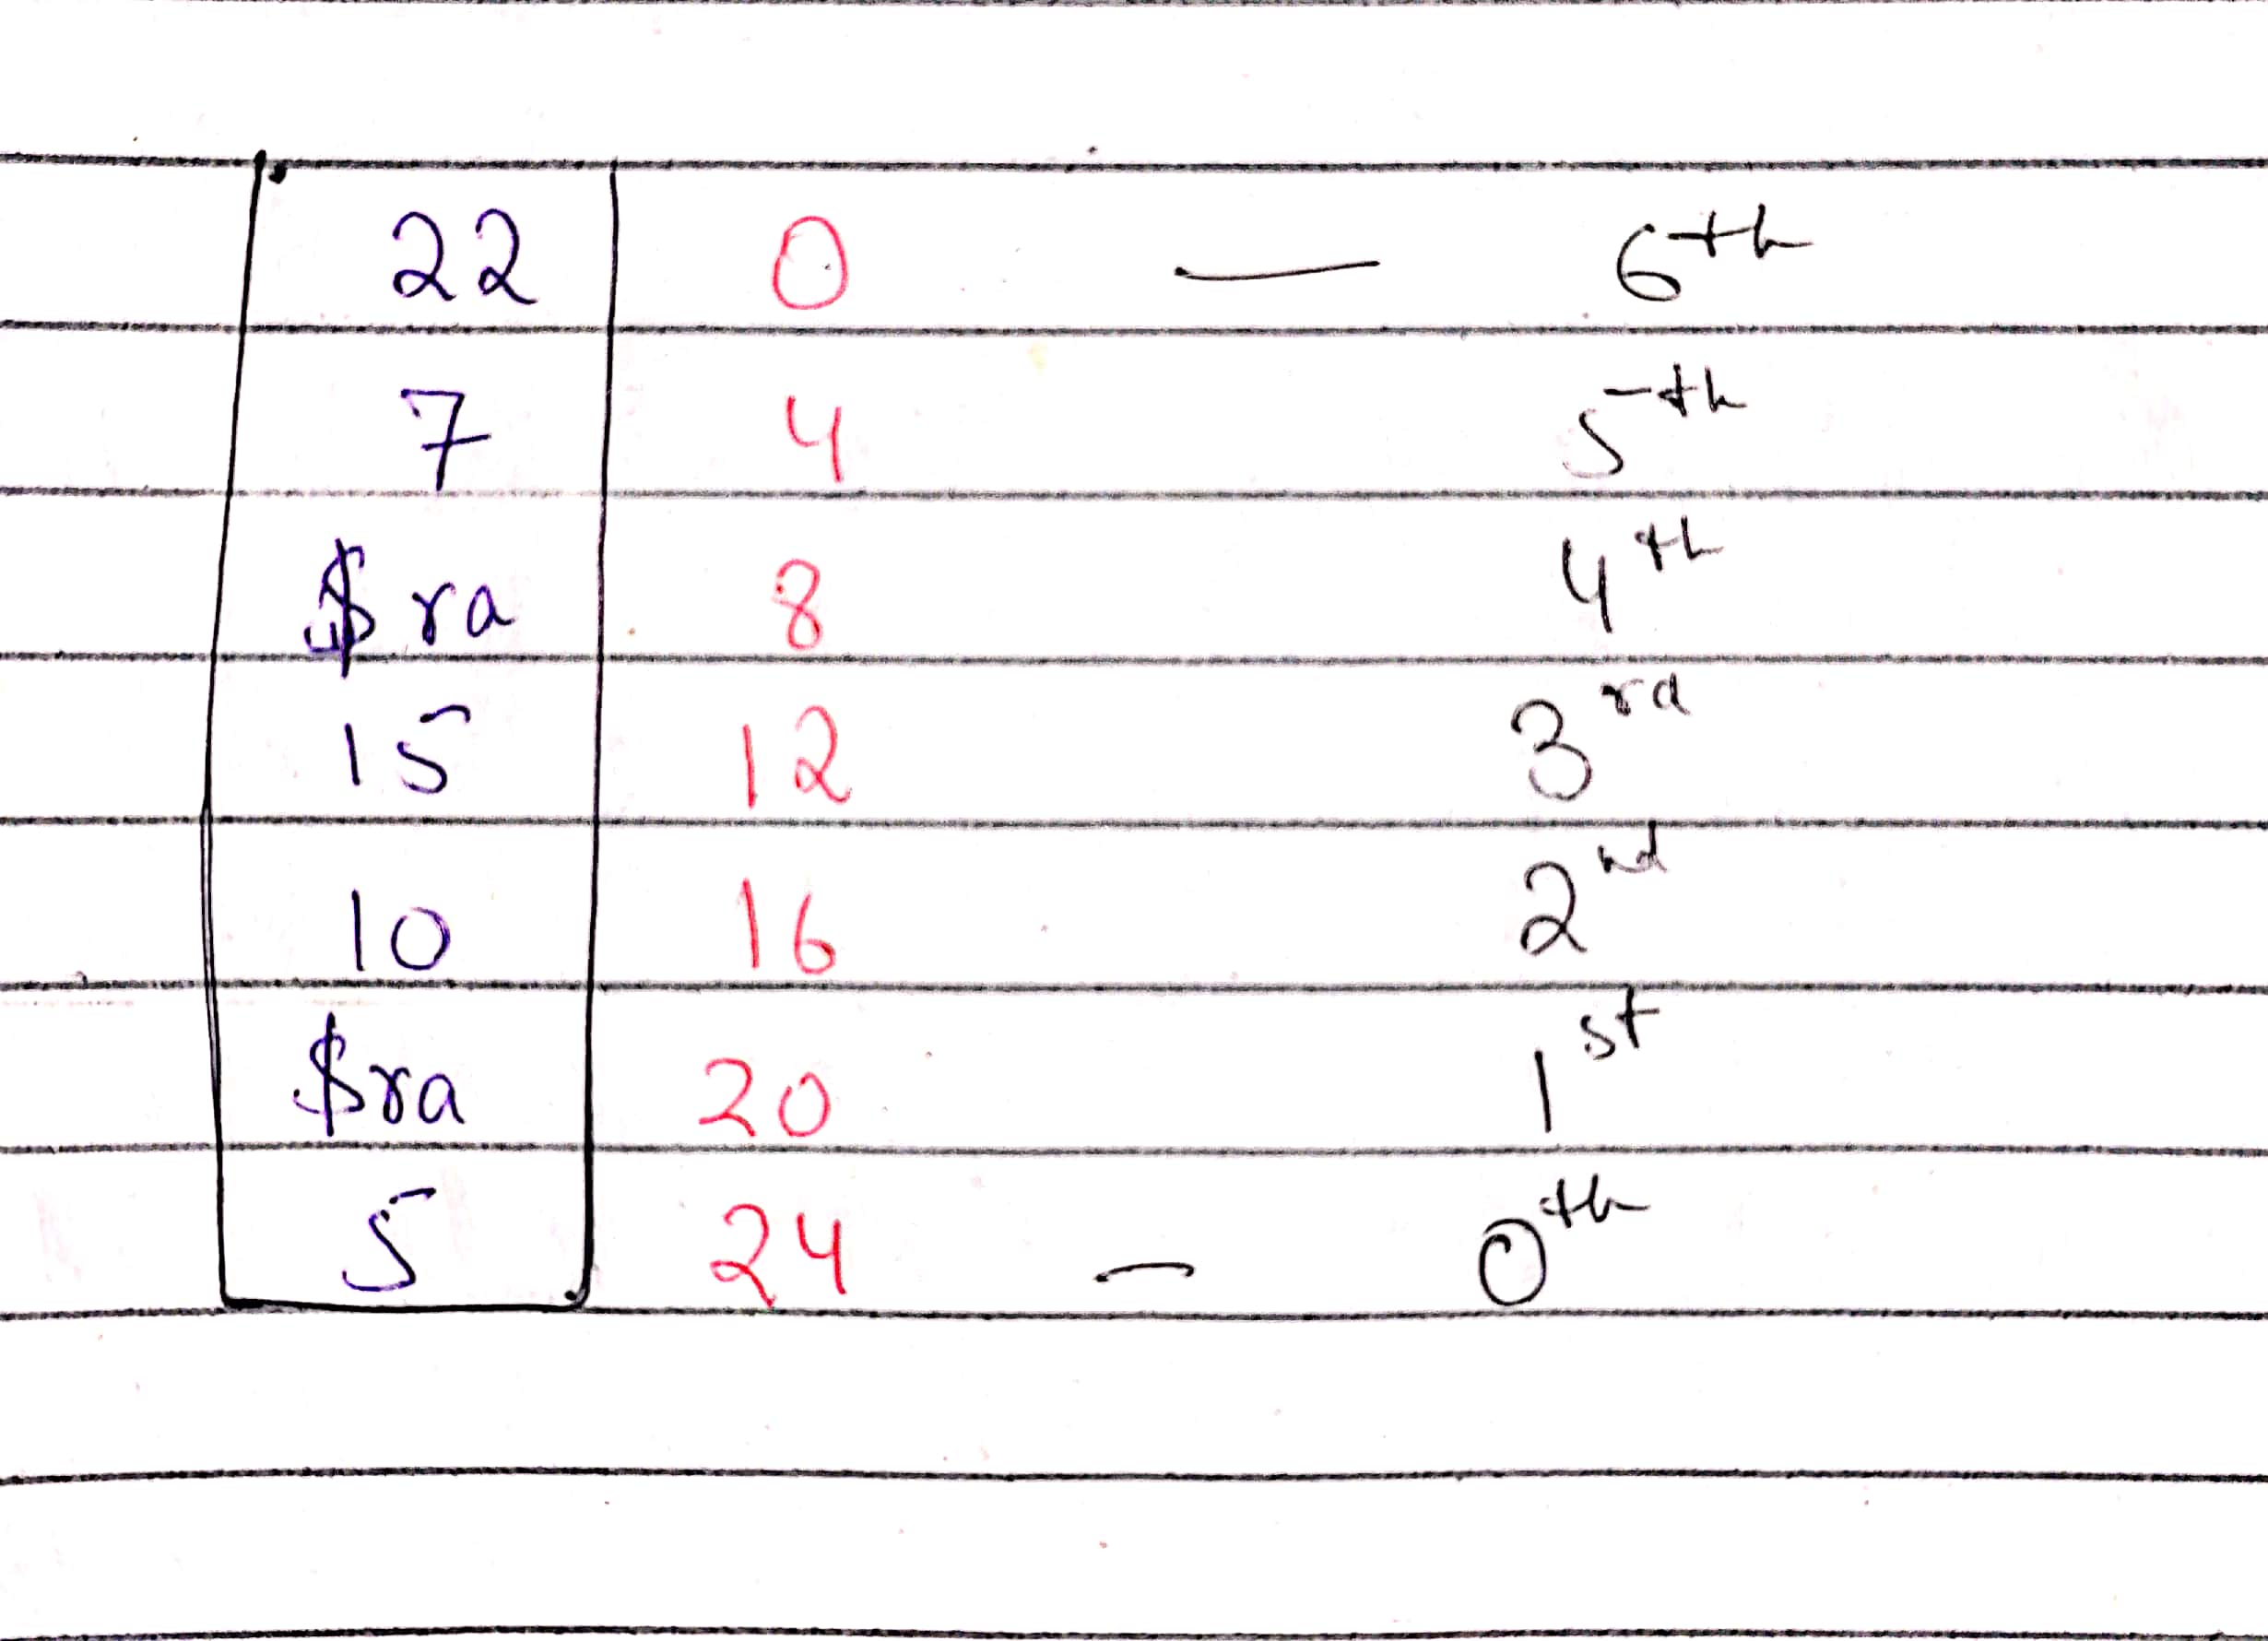 22 0 — 6th
7 4 5th
$ra 8 4th
15 12 3rd
10 16 2nd
$ra 20 1st
5 24 - 0th